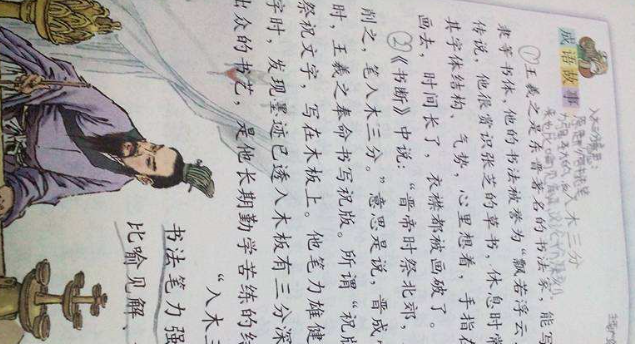 成语故事
入木三分
①王羲之是东晋著名的书法家，能写
隶等书体，他的书法被誉为“飘若浮云，
传说，他很赏识张芝的草书，休息时常
其字体结构、气势，心里想着，手指在
画去，时间长了，衣襟都被画破了。
②《书断》中说：“晋帝时祭北郊，
削之，笔入木三分。”意思是说，晋成
时，王羲之奉命书写祝版。所谓“祝版
祭祝文字，写在木板上。他笔力雄健
字时，发现墨迹已透入木板有三分深
出众的书艺，是他长期勤学苦练的结
“入木三
书法笔力强
比喻见解，